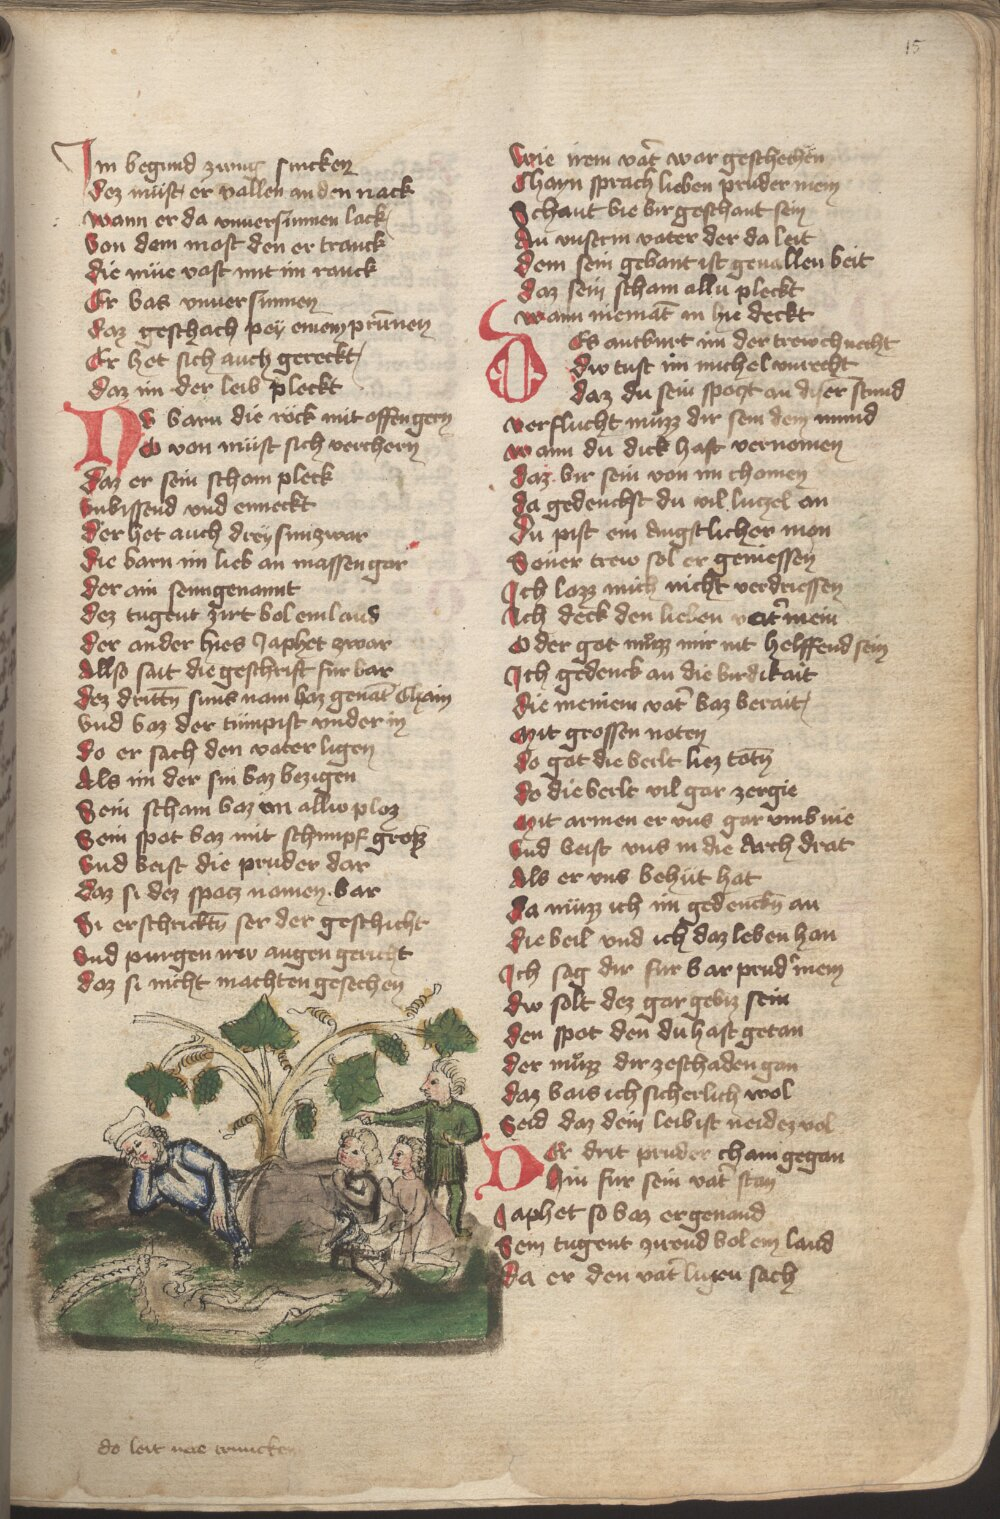 15
Im begund zwug sincken
Dez müst er vallen an den nack
Wann er da vnuersinnen lack
Von dem most den er tranck
Die müe vast mit im ranck
Er bas vnuersinnen
Daz geschach pey einem prunnen
Er het sich auch gereckt
Daz im der leib pleckt
Do barn die röck mit offen gern
Do von müst sich verchern
Daz er sein scham pleck
Vnbissend vnd enneckt
Der het auch drey sun zwar
Die barn im lieb an massen gar
Der ain sem genannt
Dez tugent zirt bol ein land
Der ander hies Japhet zwar
Allso sait die geschrift für bar
Dez dritt̄n suns nam baz genāt Cham
Vnd baz der tümpist vnder in
Do er sach den vater ligen
Als im der sin baz bezigen
Sein scham baz im alliv ploz
Sein spot baz mit schimpf groz
Vnd beist die pruder dar
Daz si dez spotz namen bar
Si erschrickt̄n ser der geschicht
Vnd purgen irew augen gericht
Daz si nicht machten gesechen
Wie irem vat̄ war geschechen
Cham sprach lieben pruder mein
Schaut bie bir geschant sein
An vnserm vater der da leit
Dem sein gebant ist geuallen beit
Daz sein scham allu pleckt
Wann niemāt in hie deckt
Des antburt im der trew chnecht
Dw tust im michel vnrecht
Daz du sein spotzt an diser stund
Verflucht müzz dir sein dein mund
Wann du dick hast vernomen
Daz bir sein von im chomen
Da gedenchst du vil lutzel an
Du pist ein angstlicher man
Seiner trew sol er geniessen
Ich lazz mich nicht verdriessen
Ich deck den lieben vat̄ mein
Oder got müzz mir nit helffend sein
Ich gedenck an die birdikait
Die meinem vat̄ baz berait
Mit grossen noten
Do got die belt liez tōt̄n
Do die belt vil gar zergie
Mit armen er vns gar vmb vie
Vnd beist vns in die Arch drat
Als er vns behüt hat
Da müzz ich im gedenck̄n an
Die beil vnd ich daz leben han
Ich sag dir für bar prud̄ mein
Dw solt dez gar gebiz sein
Den spot den du hast getan
Der müzz dir ze schaden gan
Daz bais ich sicherlich wol
Seid daz dein leib ist neidez vol
Der drit pruder cham gegan
Hin für sein vat̄ stan
Japhet so baz er genand
Sein tugent zirend bol ein land
Da er den vat̄ ligen sach
do leit noe truncken